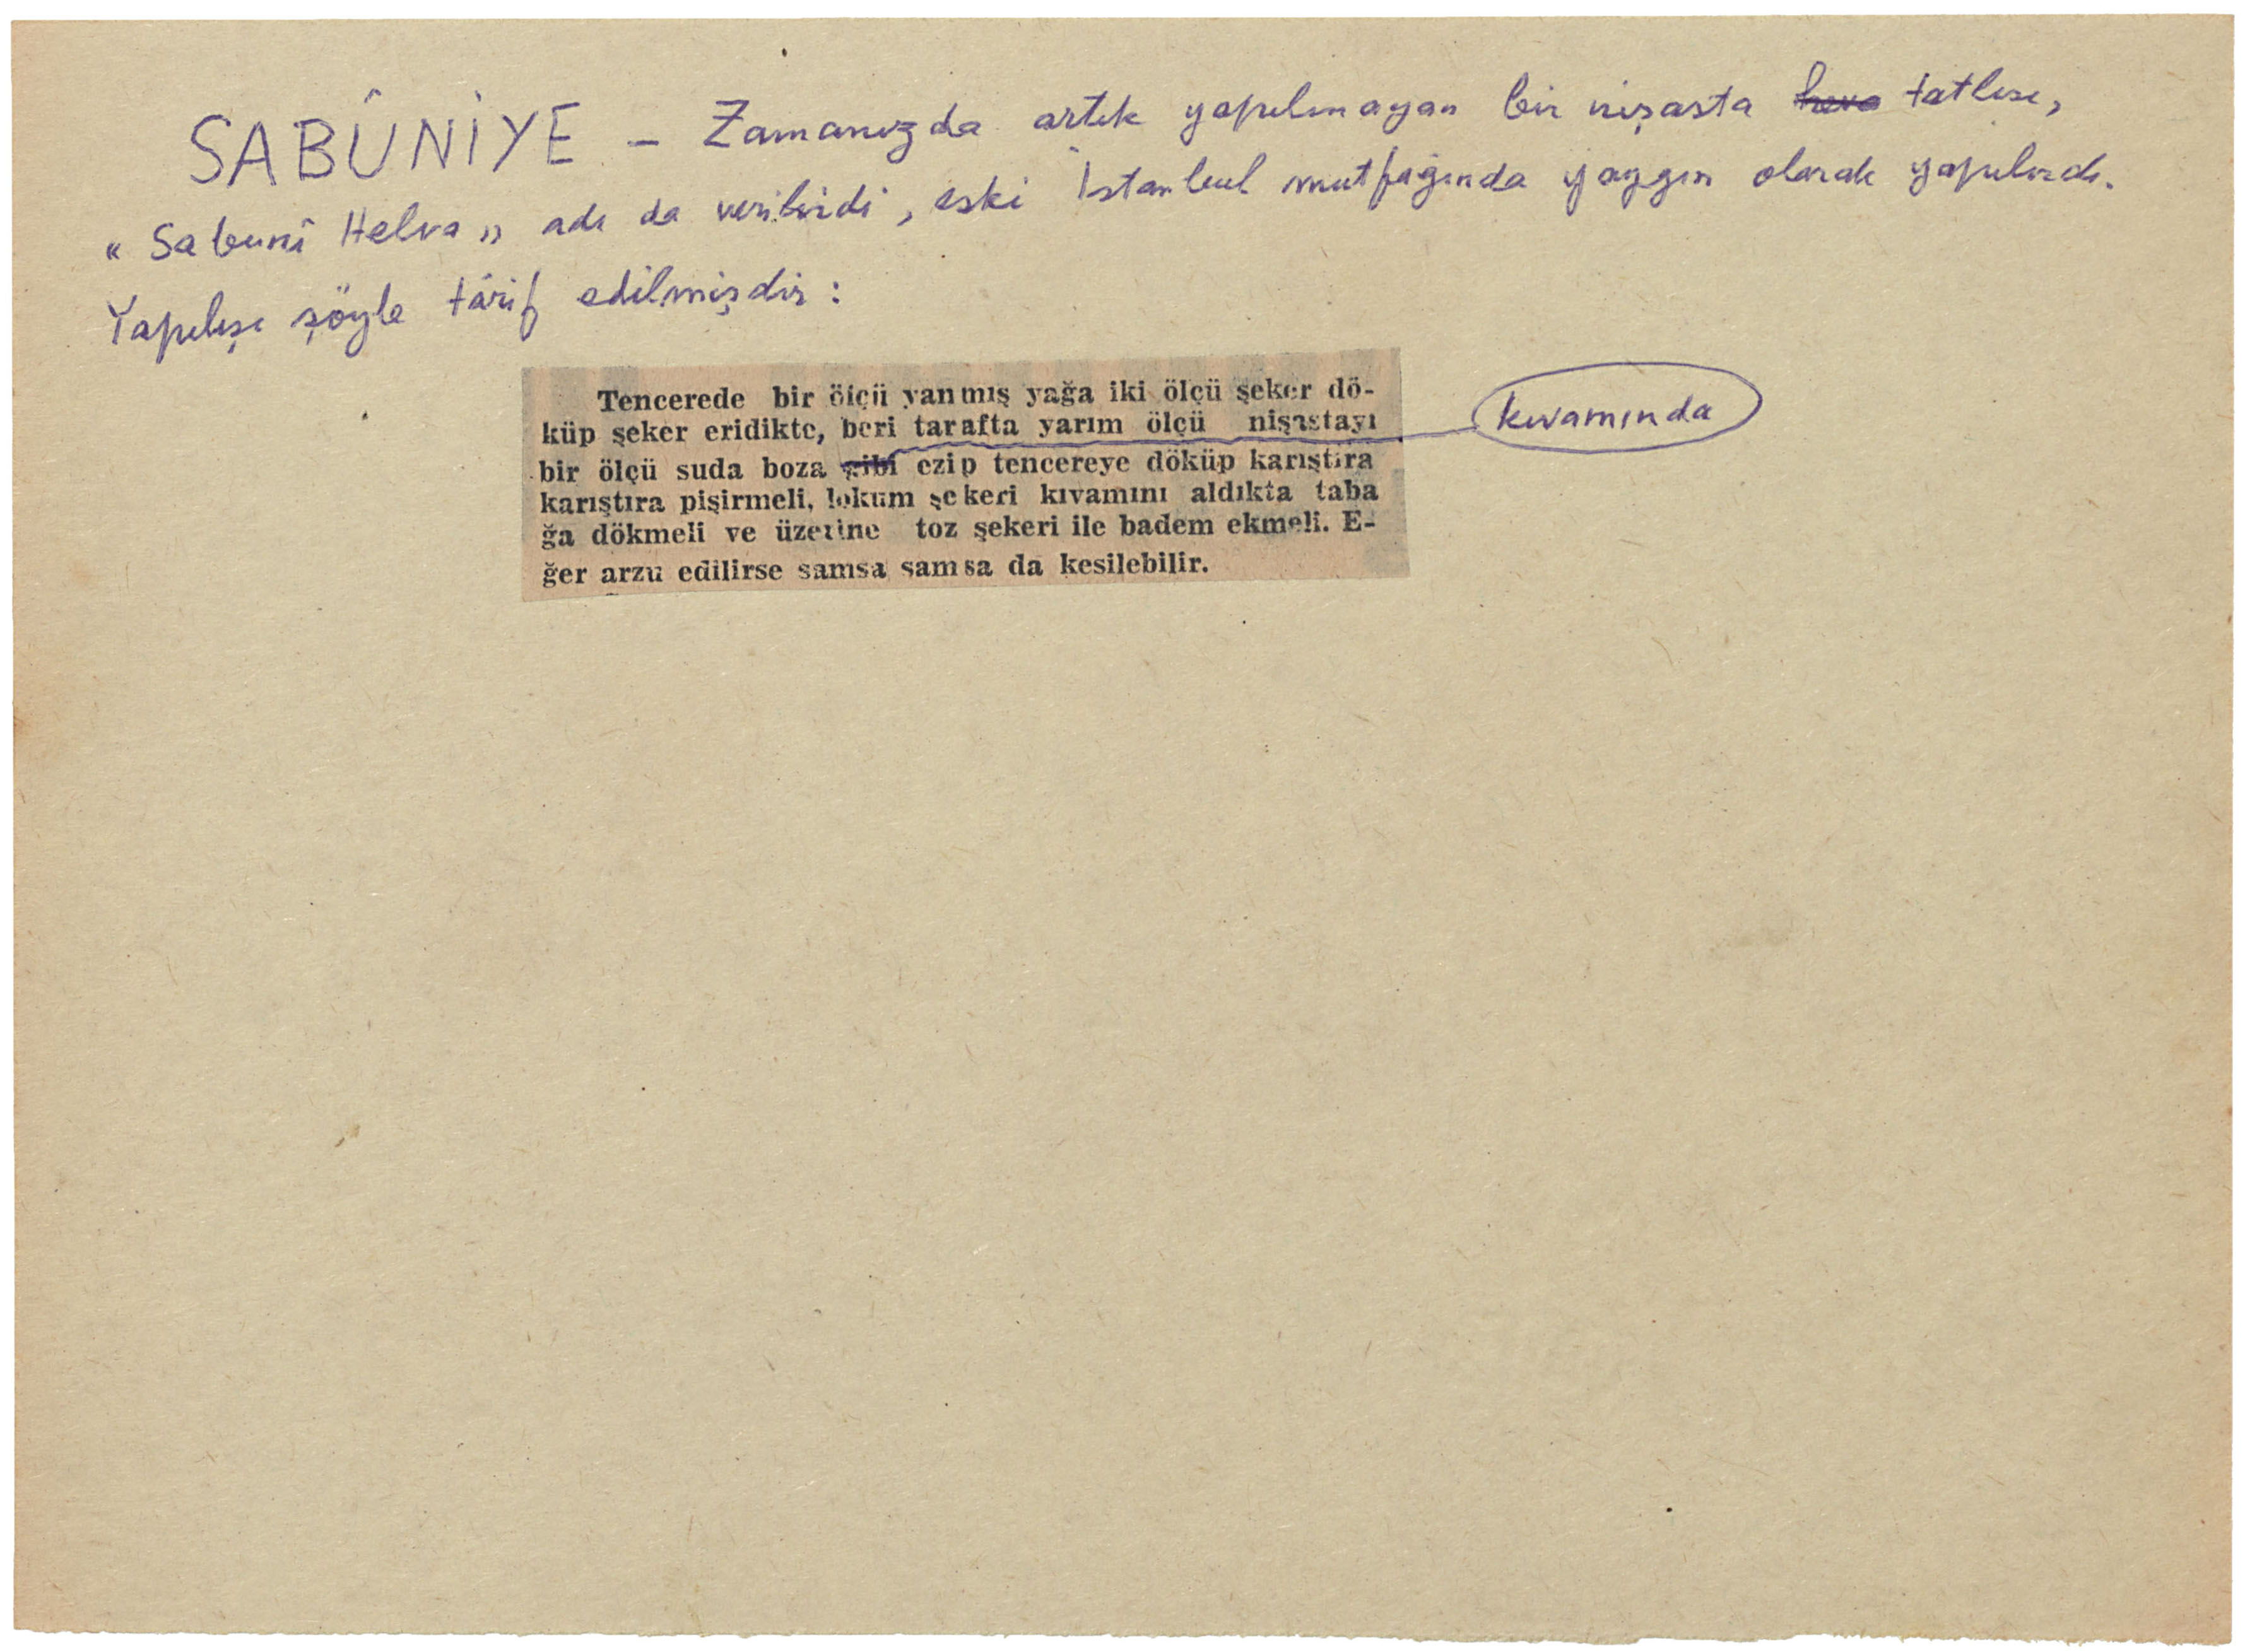 SABÛNİYE - Zamanızda artık yapılmayan bir nişasta tatlısı,
"Sabunî Helva" adı da verilirdi, eski İstanbul mutfağında yaygın olarak yapılırdı.
Yapılışı şöyle târif edilmişdir:
Tencerede bir ölçü yanmış yağa iki ölçü şeker dö-
küp şeker eridikte, beri tarafta yarım ölçü nişastayı
kıvamında
bir ölçü suda boza gibi ezip tencereye döküp karıştıra
karıştıra pişirmeli, lokum şekeri kıvamını aldıkta taba
ğa dökmeli ve üzerine toz şekeri ile badem ekmeli. E-
ğer arzu edilirse samsa samsa da kesilebilir.